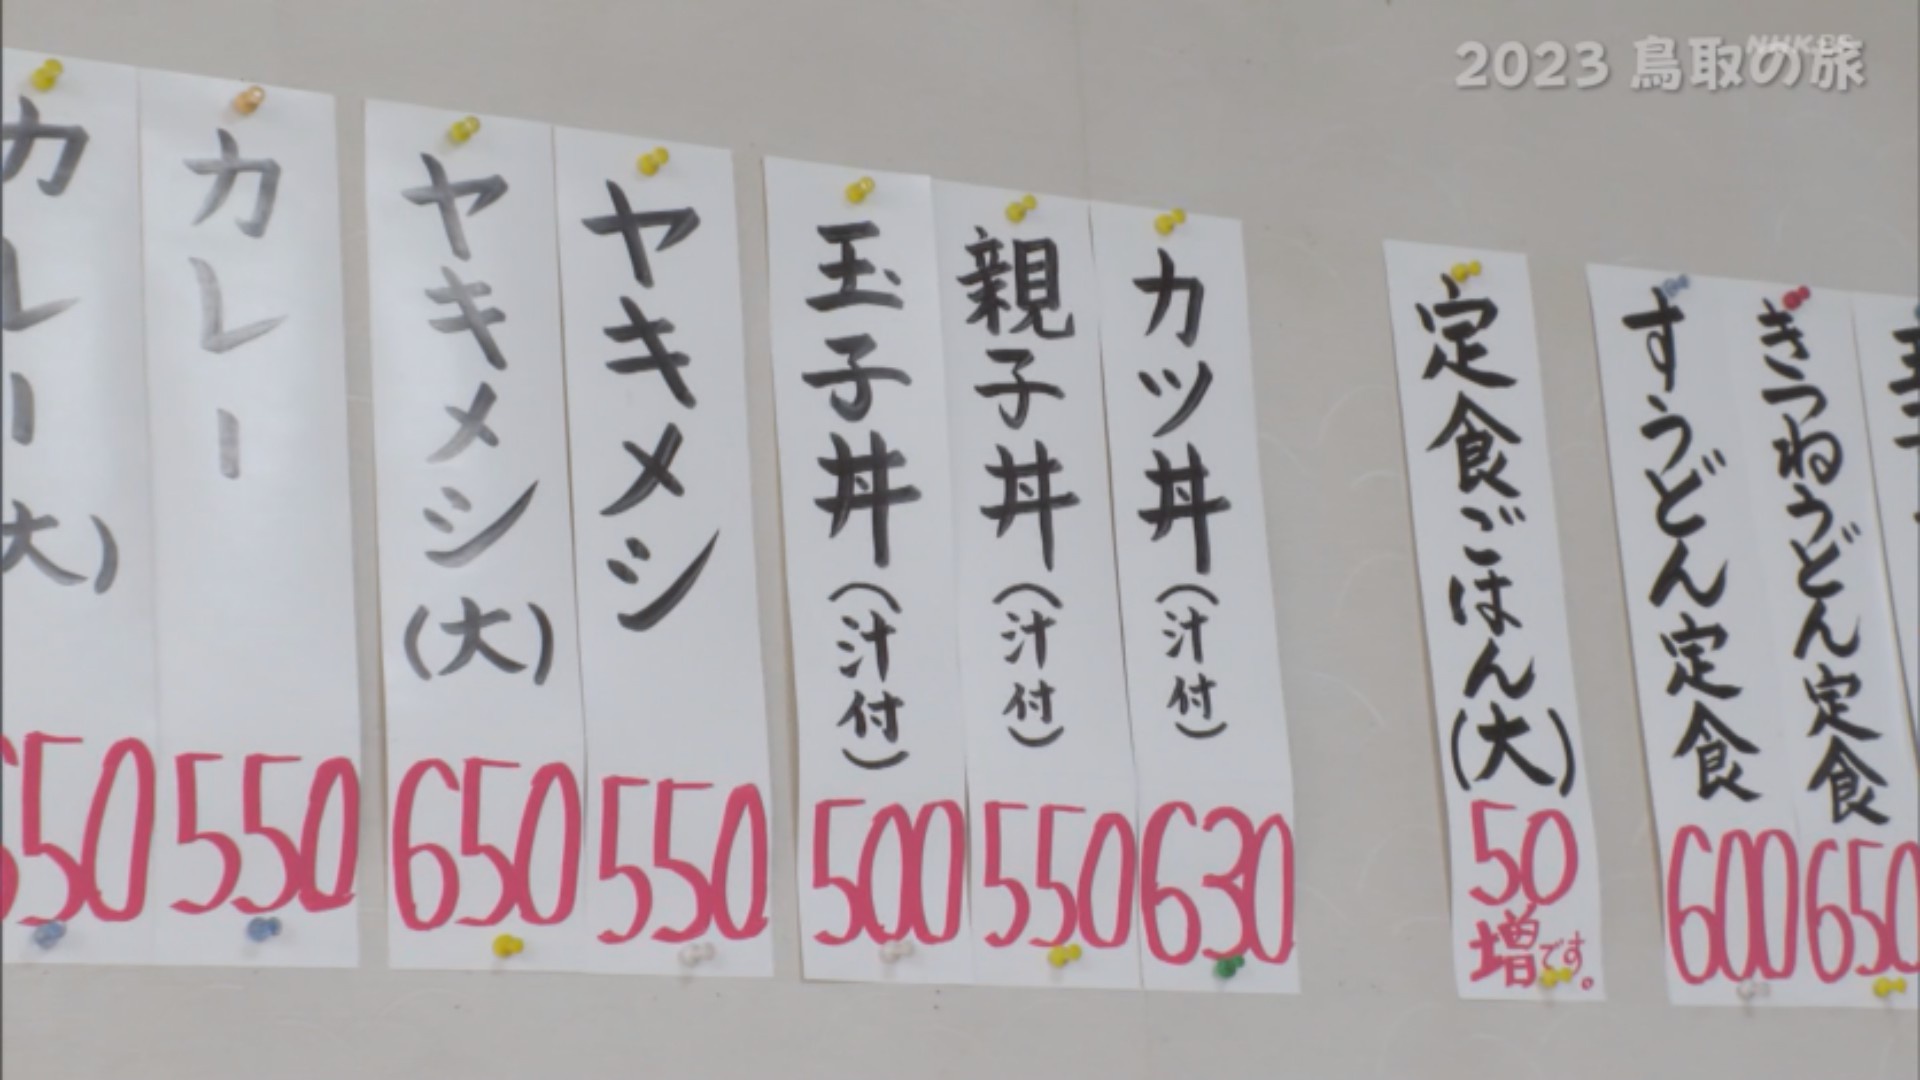 2023 鳥取の旅
NHK BS
カレー(大)
650
カレー
550
ヤキメシ(大)
650
ヤキメシ
550
玉子丼(汁付)
500
親子丼(汁付)
550
カツ丼(汁付)
630
定食ごはん(大)
50
増です。
すうどん定食
600
きつねうどん定食
650